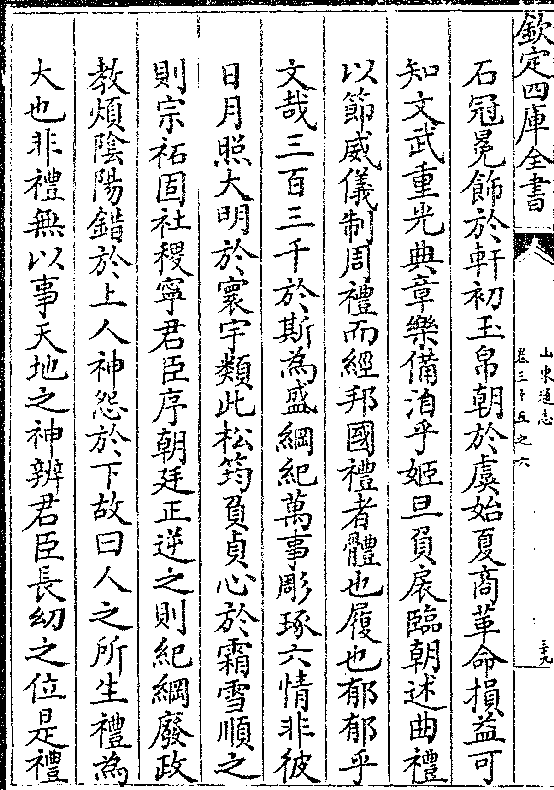 欽定四庫全書
山東通志
卷三十五之六
三十九
石冠冕飾於軒初玉帛朝於虞始夏商革命損益可
知文武重光典章樂備洎乎姬旦負扆臨朝述曲禮
以節威儀制周禮而經邦國禮者體也履也郁郁乎
文哉三百三千於斯為盛綱紀萬事彫琢六情非彼
日月照大明於寰宇類此松筠負貞心於霜雪順之
則宗祏固社稷寧君臣序朝廷正逆之則紀綱廢政
教煩陰陽錯於上人神怨於下故曰人之所生禮為
大也非禮無以事天地之神辨君臣長幼之位是禮